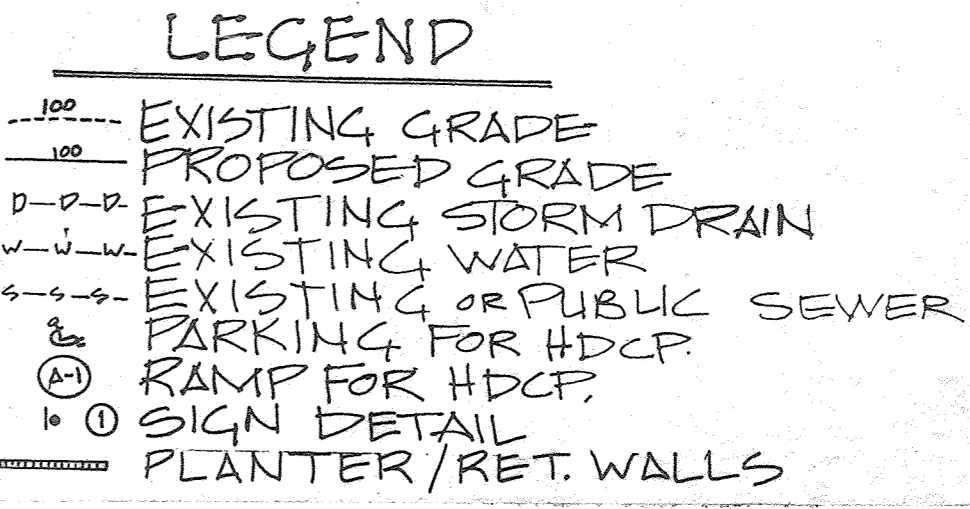 LEGEND
100 EXISTING GRADE
100 PROPOSED GRADE
D—D—D- EXISTING STORM DRAIN
W—W—W- EXISTING WATER
S—S—S- EXISTING OR PUBLIC SEWER
PARKING FOR HDCP.
A-1 RAMP FOR HDCP.
1 SIGN DETAIL
PLANTER/RET. WALLS